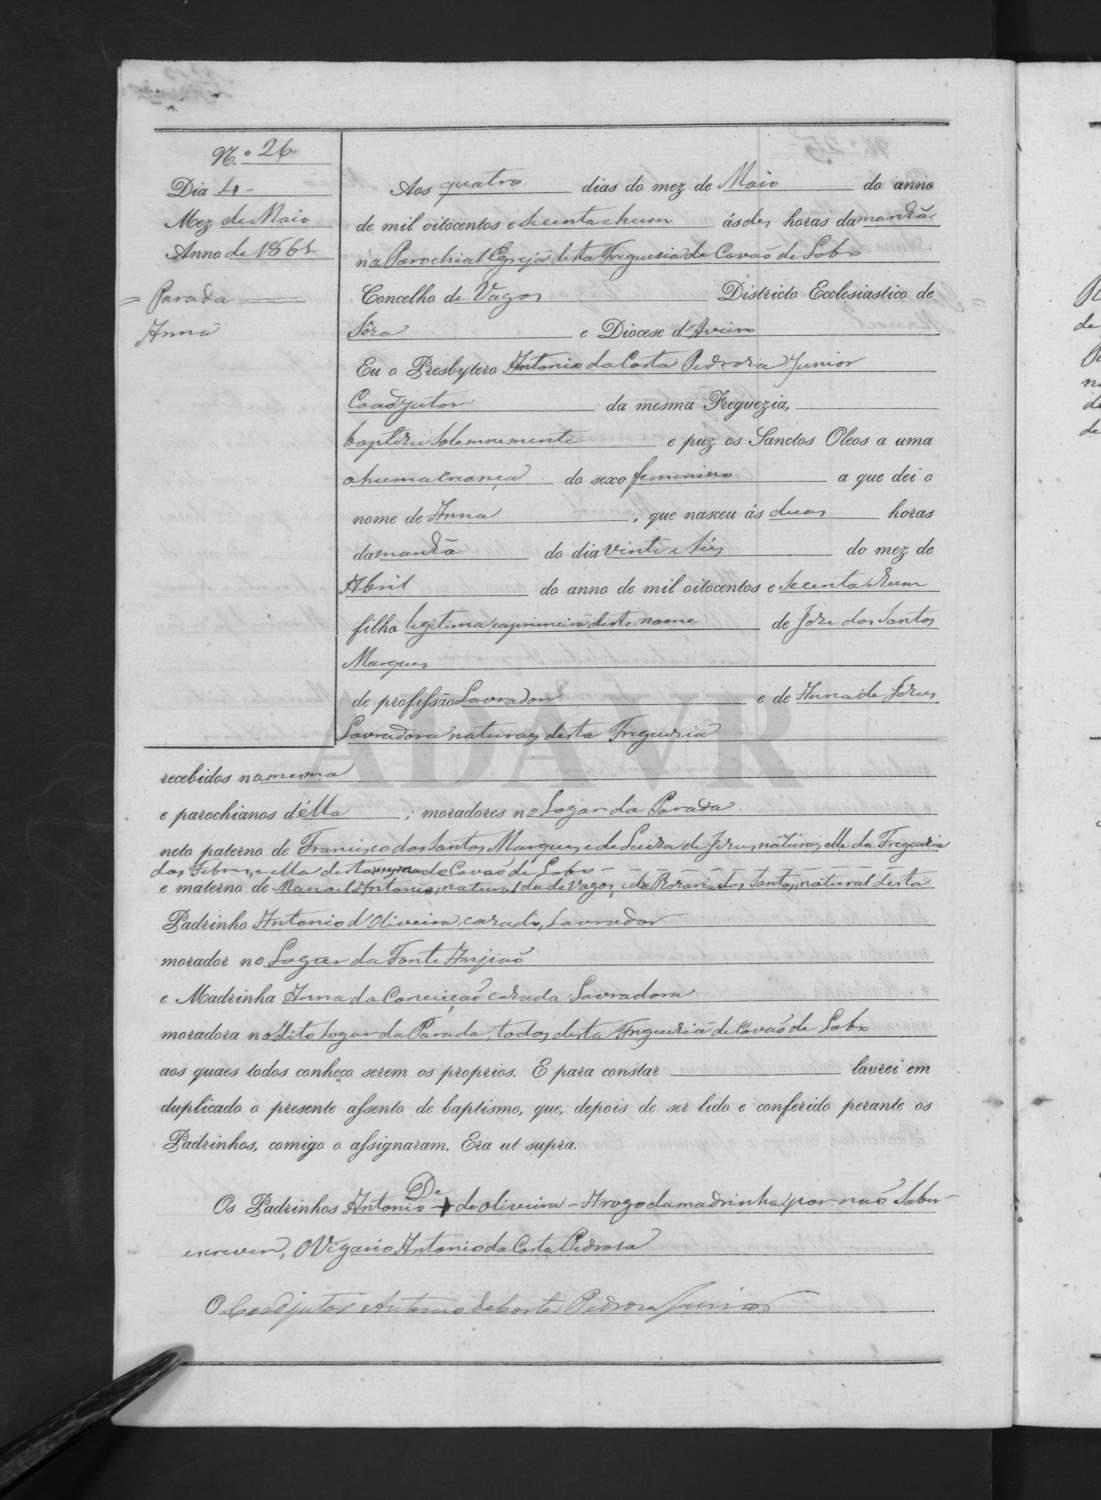 N.º 26
Dia 4 -
Mez de Maio
Anno de 1861
= Parada
Anna
Aos quatro dias do mez de Maio do anno
de mil oitocentos e secenta e hum ás dez horas da manhã
na Parochial Egreja desta Freguezia de Covaõ de Lobo
Concelho de Vagos Districto Ecclesiastico de
Sôza e Diocese d'Aveiro
Eu o Presbytero Antonio da Costa Pedroza Junior
Coadjutor da mesma Freguezia,
baptizei solemnemente e puz os Sanctos Oleos a uma
a huma criança do sexo femenino a que dei o
nome de Anna, que nasceu ás duas horas
da manhã do dia vinte e seis do mez de
Abril do anno de mil oitocentos e secenta e hum
filha legitima e a primeira deste nome de Joze dos Santos
Marques
de profissão Lavrador e de Anna de Jezus
Lavradora naturaes desta Freguezia
recebidos na mesma
e parochianos d'ella; moradores no Lugar da Parada
neto paterno de Francisco dos Santos Marques, e de Luiza de Jezus, naturaes elle da Freguezia
das Febres, e ella desta mesma de Covaõ de Lobo
e materno de Manoel Antonio, natural da de Vagos, e de Rozaria dos Santos, natural desta
Padrinho Antonio d'Oliveira, cazado, Lavrador
morador no Lugar da Fonte Anjiaõ
e Madrinha Anna da Conceiçaõ cazada Lavradora
moradora no dito Lugar da Parada, todos desta Freguezia de Covaõ de Lobo
aos quaes todos conheço serem os proprios. E para constar lavrei em
duplicado o presente assento de baptismo, que, depois de ser lido e conferido perante os
Padrinhos, comigo o assignaram. Era ut supra.
De
Os Padrinhos Antonio + de oliveira - A rogo da madrinha por naõ saber
escrever, O Vigario Antonio da Costa Pedroza
O Coadjutor Antonio da Costa Pedroza Junior
ADAVR